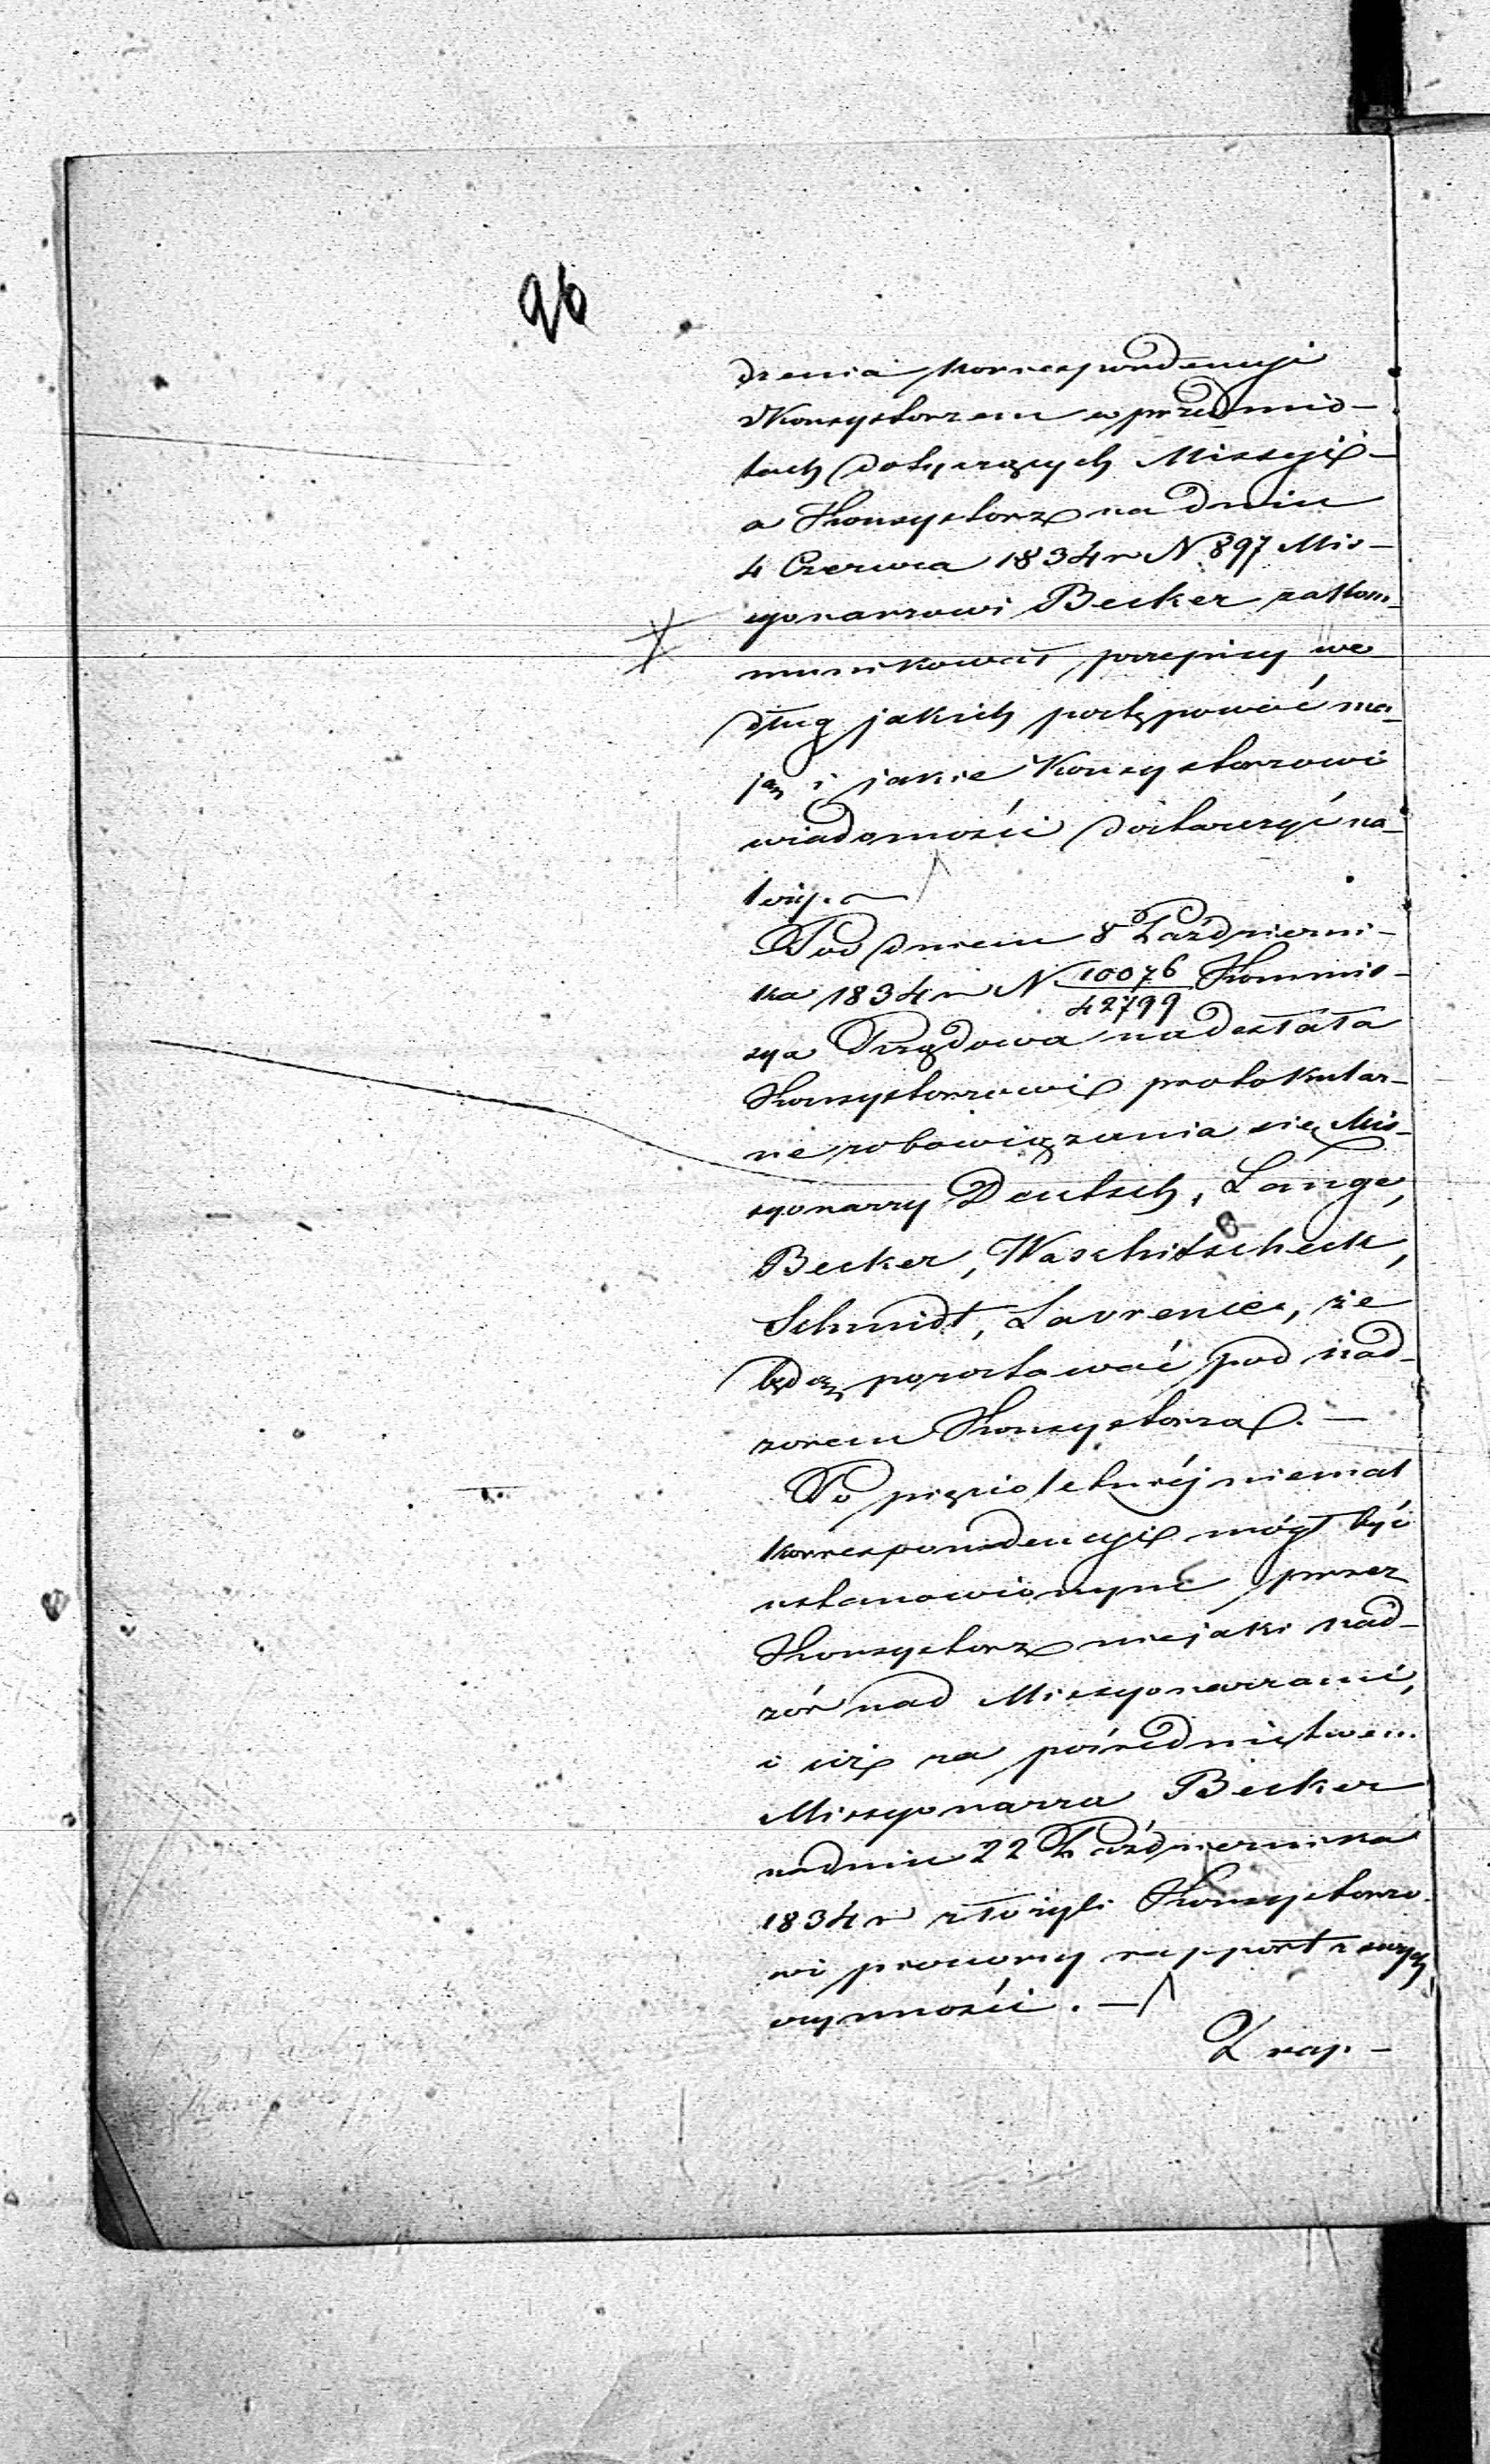 96
dzenia korrespondencyi
z Konsystorzem w przedmio-
tach dotyczących Missyi
a Konsystorz na dniu
4 Czerwca 1834 r N. 897 Mis-
syonarzowi Becker zakom-
munikował przepisy we
dług jakich postępować ma-
ją i jakie Konsystorzowi
wiadomości dostarczyć na-
leży.
Pod dniem 8 Październi-
ka 1834 r N 10076/42799 Kommis-
sya Rządowa nadesłała
Konsystorzowi protokular-
ne zobowiązania się Mis-
syonarzy Deutsch, Lange,
Becker, Waschitscheck,
Schmidt, Lawrence, że
będą pozostawać pod nad-
zorem Konsystorza. —
Po pięcioletniéj niemal
korrespondencyi mógł być
ustanowionym przez
Konsystorz niejaki nad-
zór nad Missyonarzami,
i ciż za pośrednictwem
Missyonarza Becker
na dniu 22 Października
1834 r złożyli Konsystorzo-
wi pierwszy rapport z swych
czynności. —
Z rap-